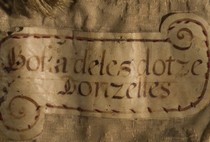 Boka deles dotze
Donzelles